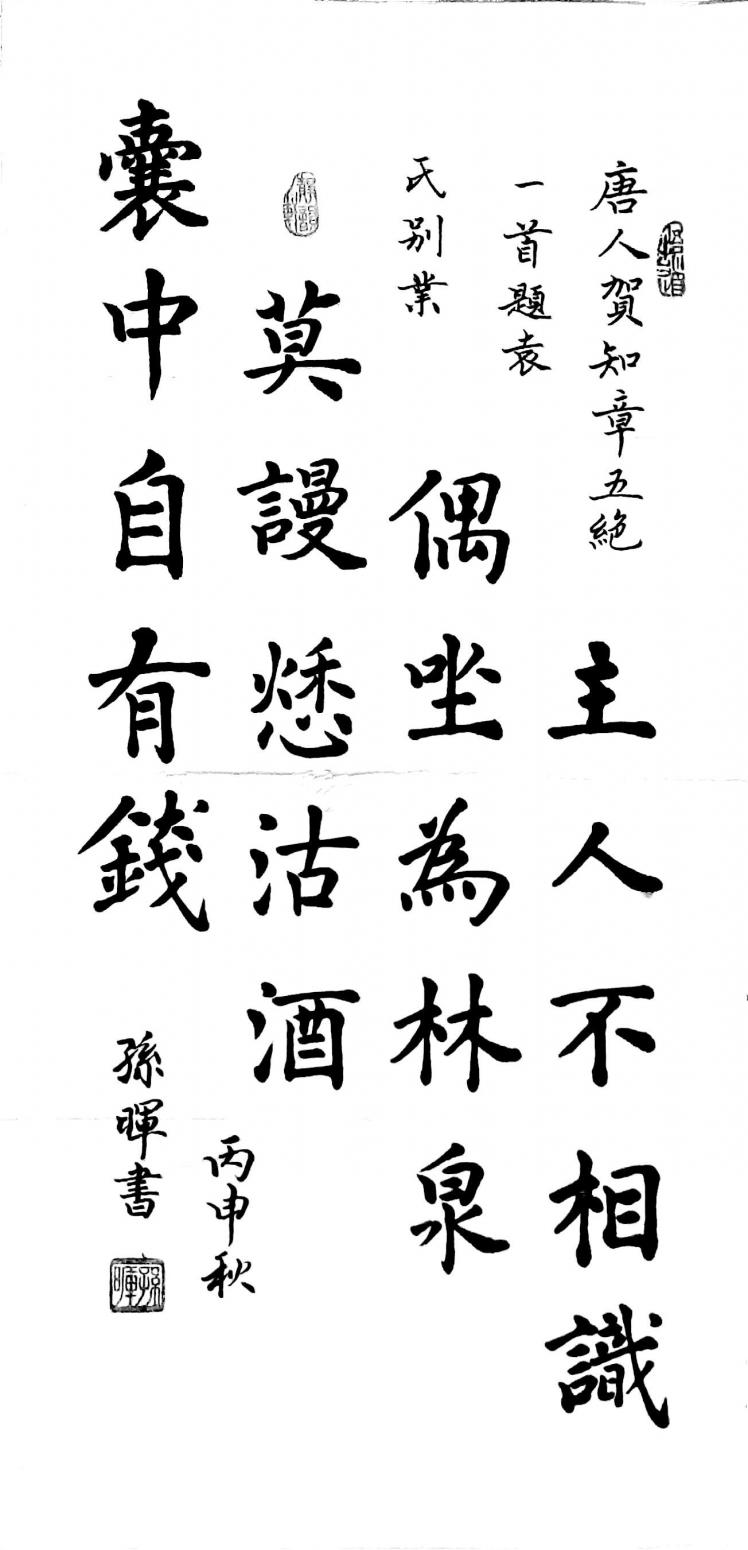 唐人賀知章五絶
一首題袁
氏別業
主人不相識
偶坐為林泉
莫謾愁沽酒
囊中自有錢
丙申秋
孫暉書
孫暉